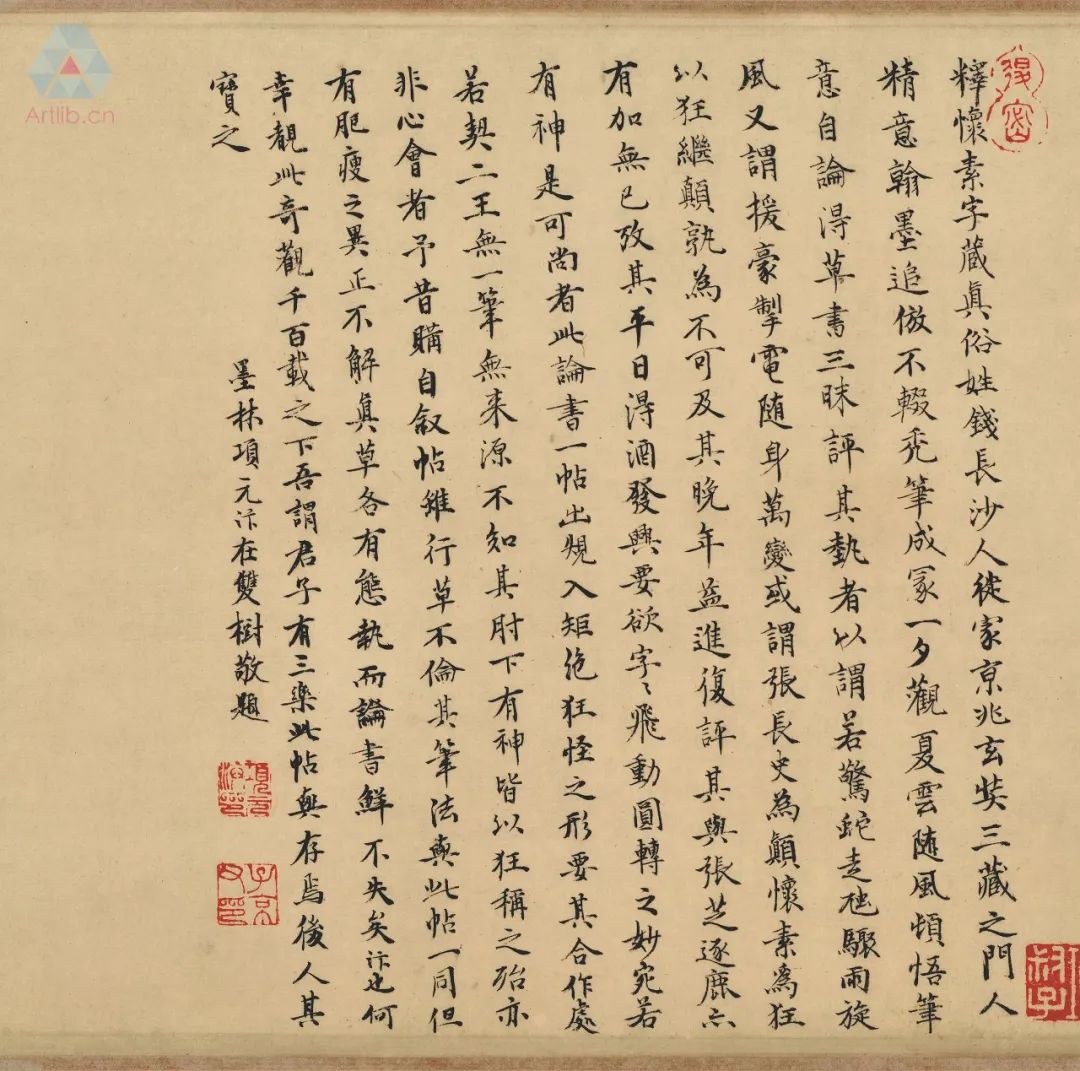 釋懷素字藏真俗姓錢長沙人徙家京兆玄奘三藏之門人
精意翰墨追倣不輟禿筆成冢一夕觀夏雲隨風頓悟筆
意自論得草書三昧評其埶者以謂若驚蛇走虺驟雨旋
風又謂援豪掣電隨身萬變或謂張長史為顛懷素為狂
以狂繼顛孰為不可及其晚年益進復評其與張芝逐鹿亦
有加無已攷其平日得酒發興要欲字〻飛動圓轉之妙宛若
有神是可尚者此論書一帖出規入矩絶狂怪之形要其合作處
若契二王無一筆無来源不知其肘下有神皆以狂稱之殆亦
非心會者予昔購自叙帖雖行草不倫其筆法與此帖一同但
有肥瘦之異正不解真草各有態執而論書鮮不失矣汴也何
幸覩此奇觀千百載之下吾謂君子有三樂此帖與存焉後人其
寶之
墨林項元汴在雙樹敬題
項元汴印
子京父印
Artlib.cn